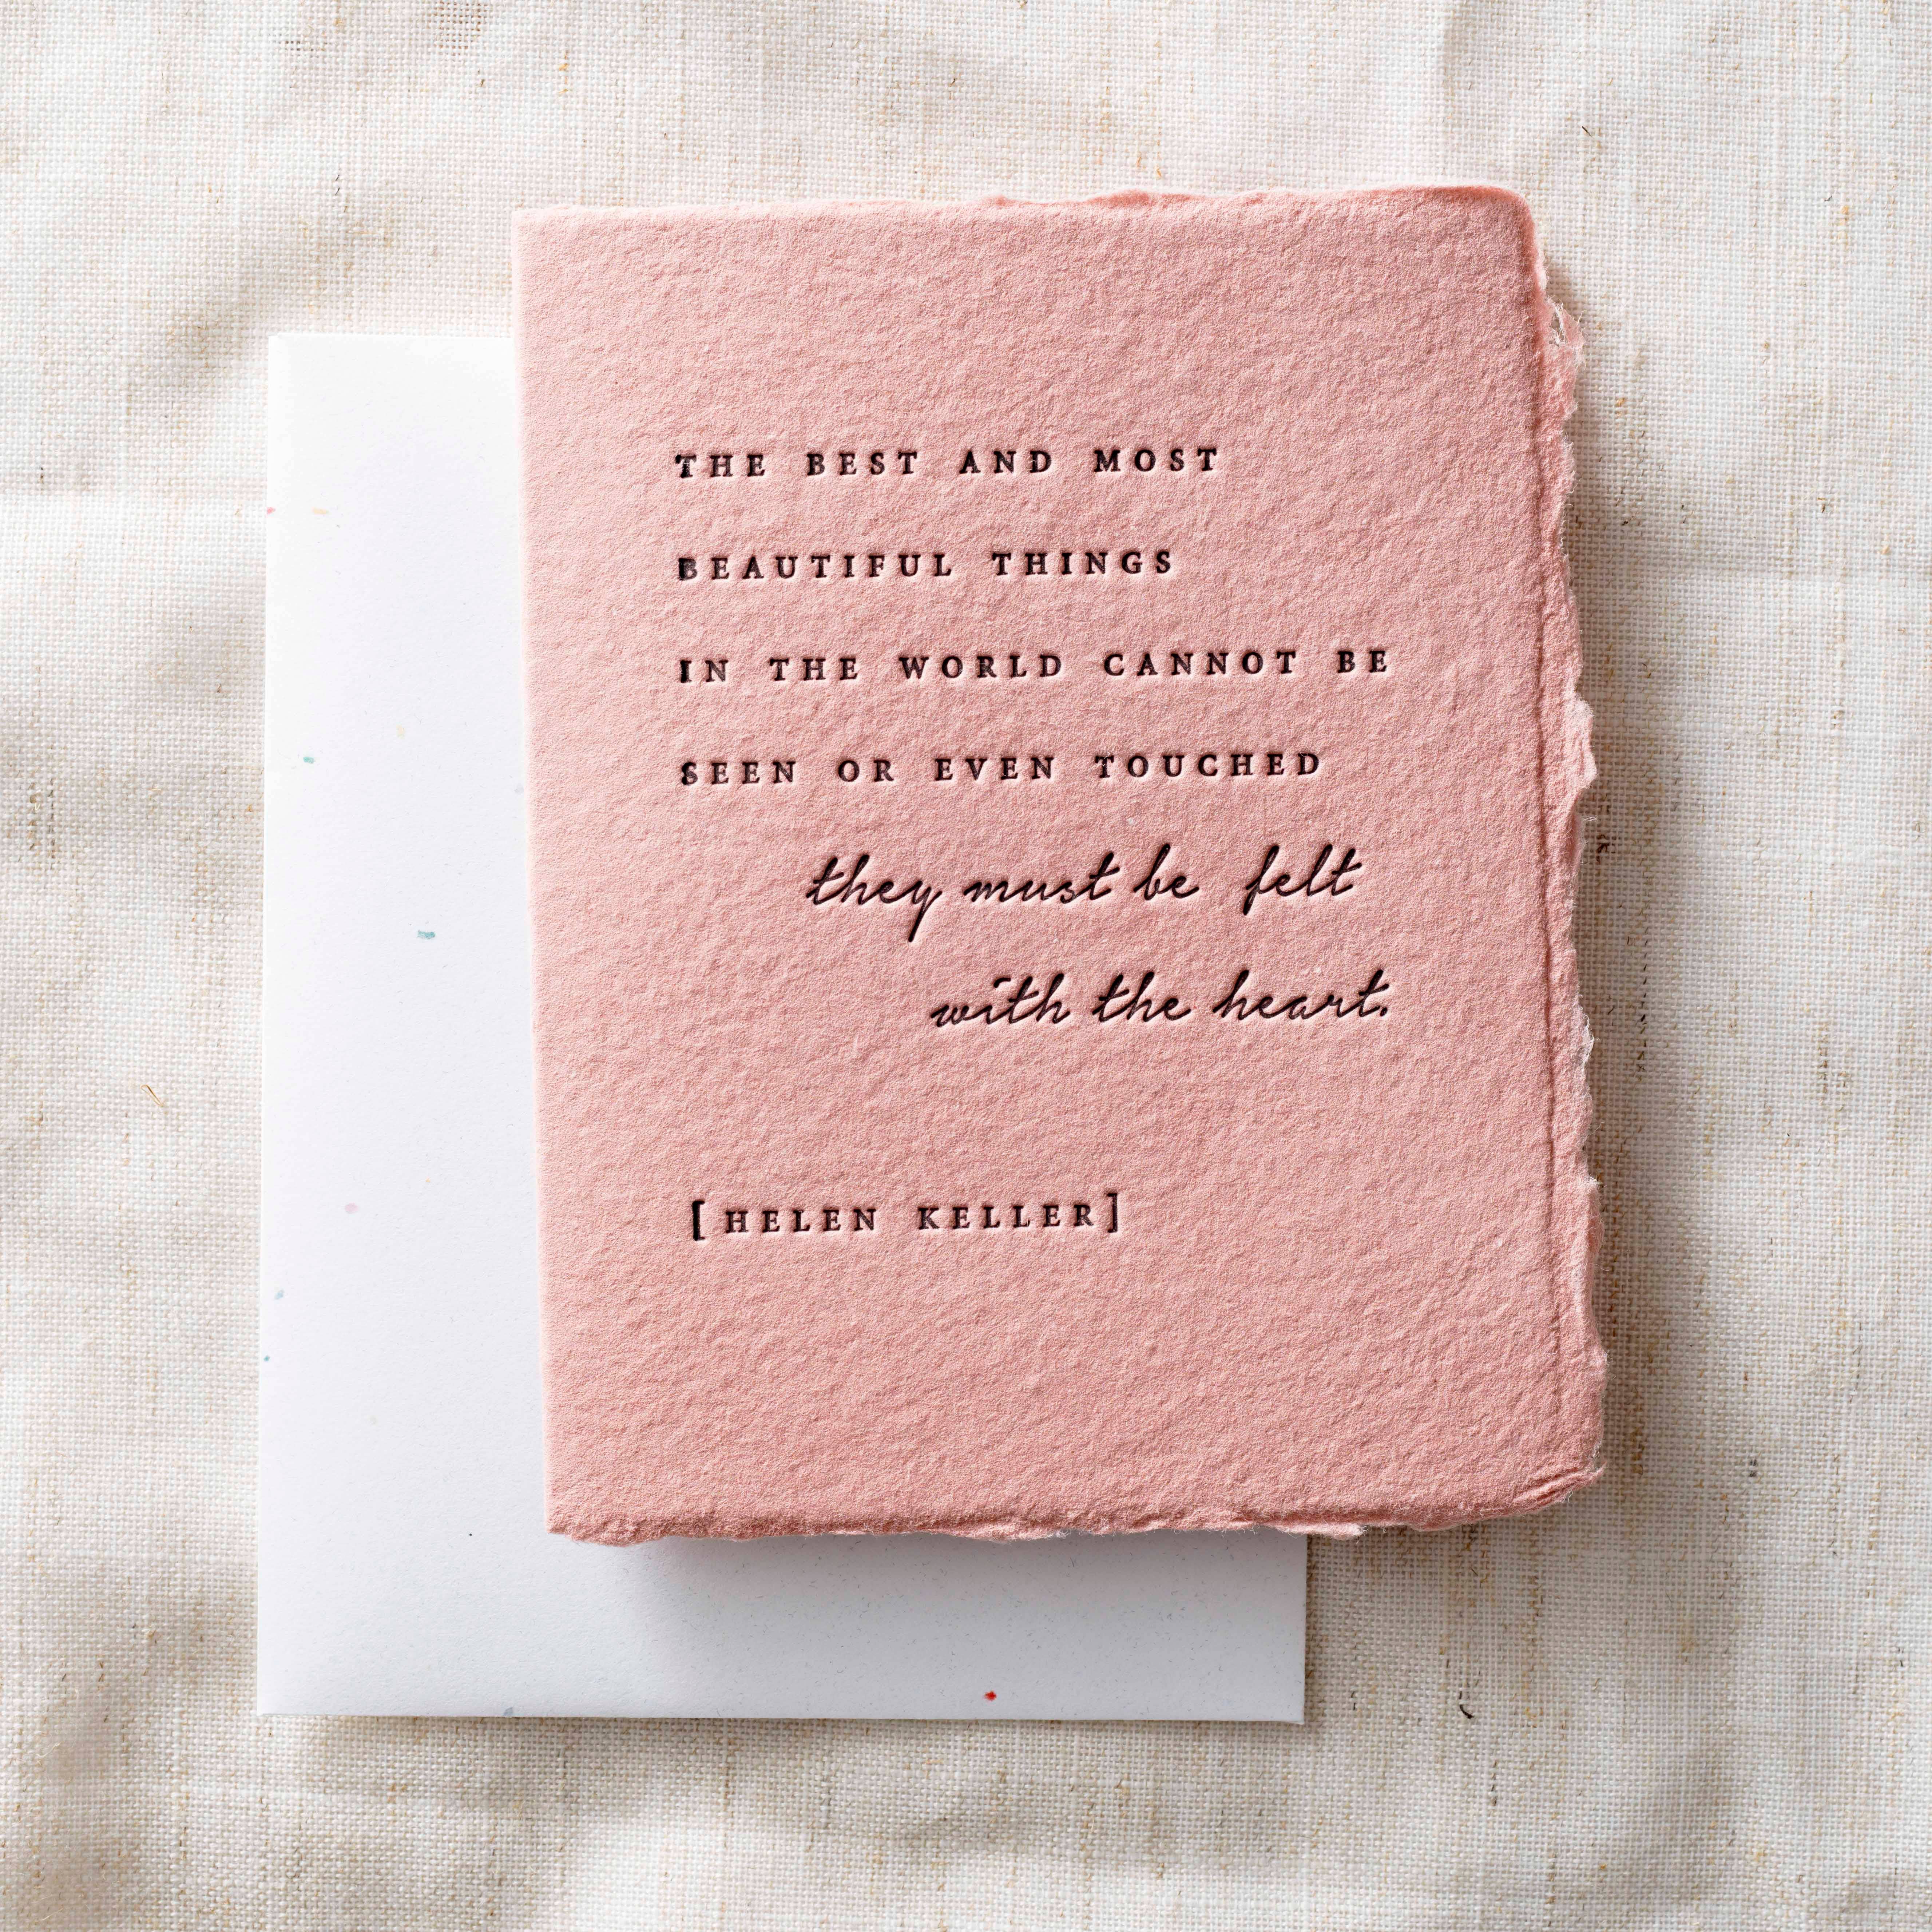 THE BEST AND MOST
BEAUTIFUL THINGS
IN THE WORLD CANNOT BE
SEEN OR EVEN TOUCHED
they must be felt
with the heart.
[HELEN KELLER]